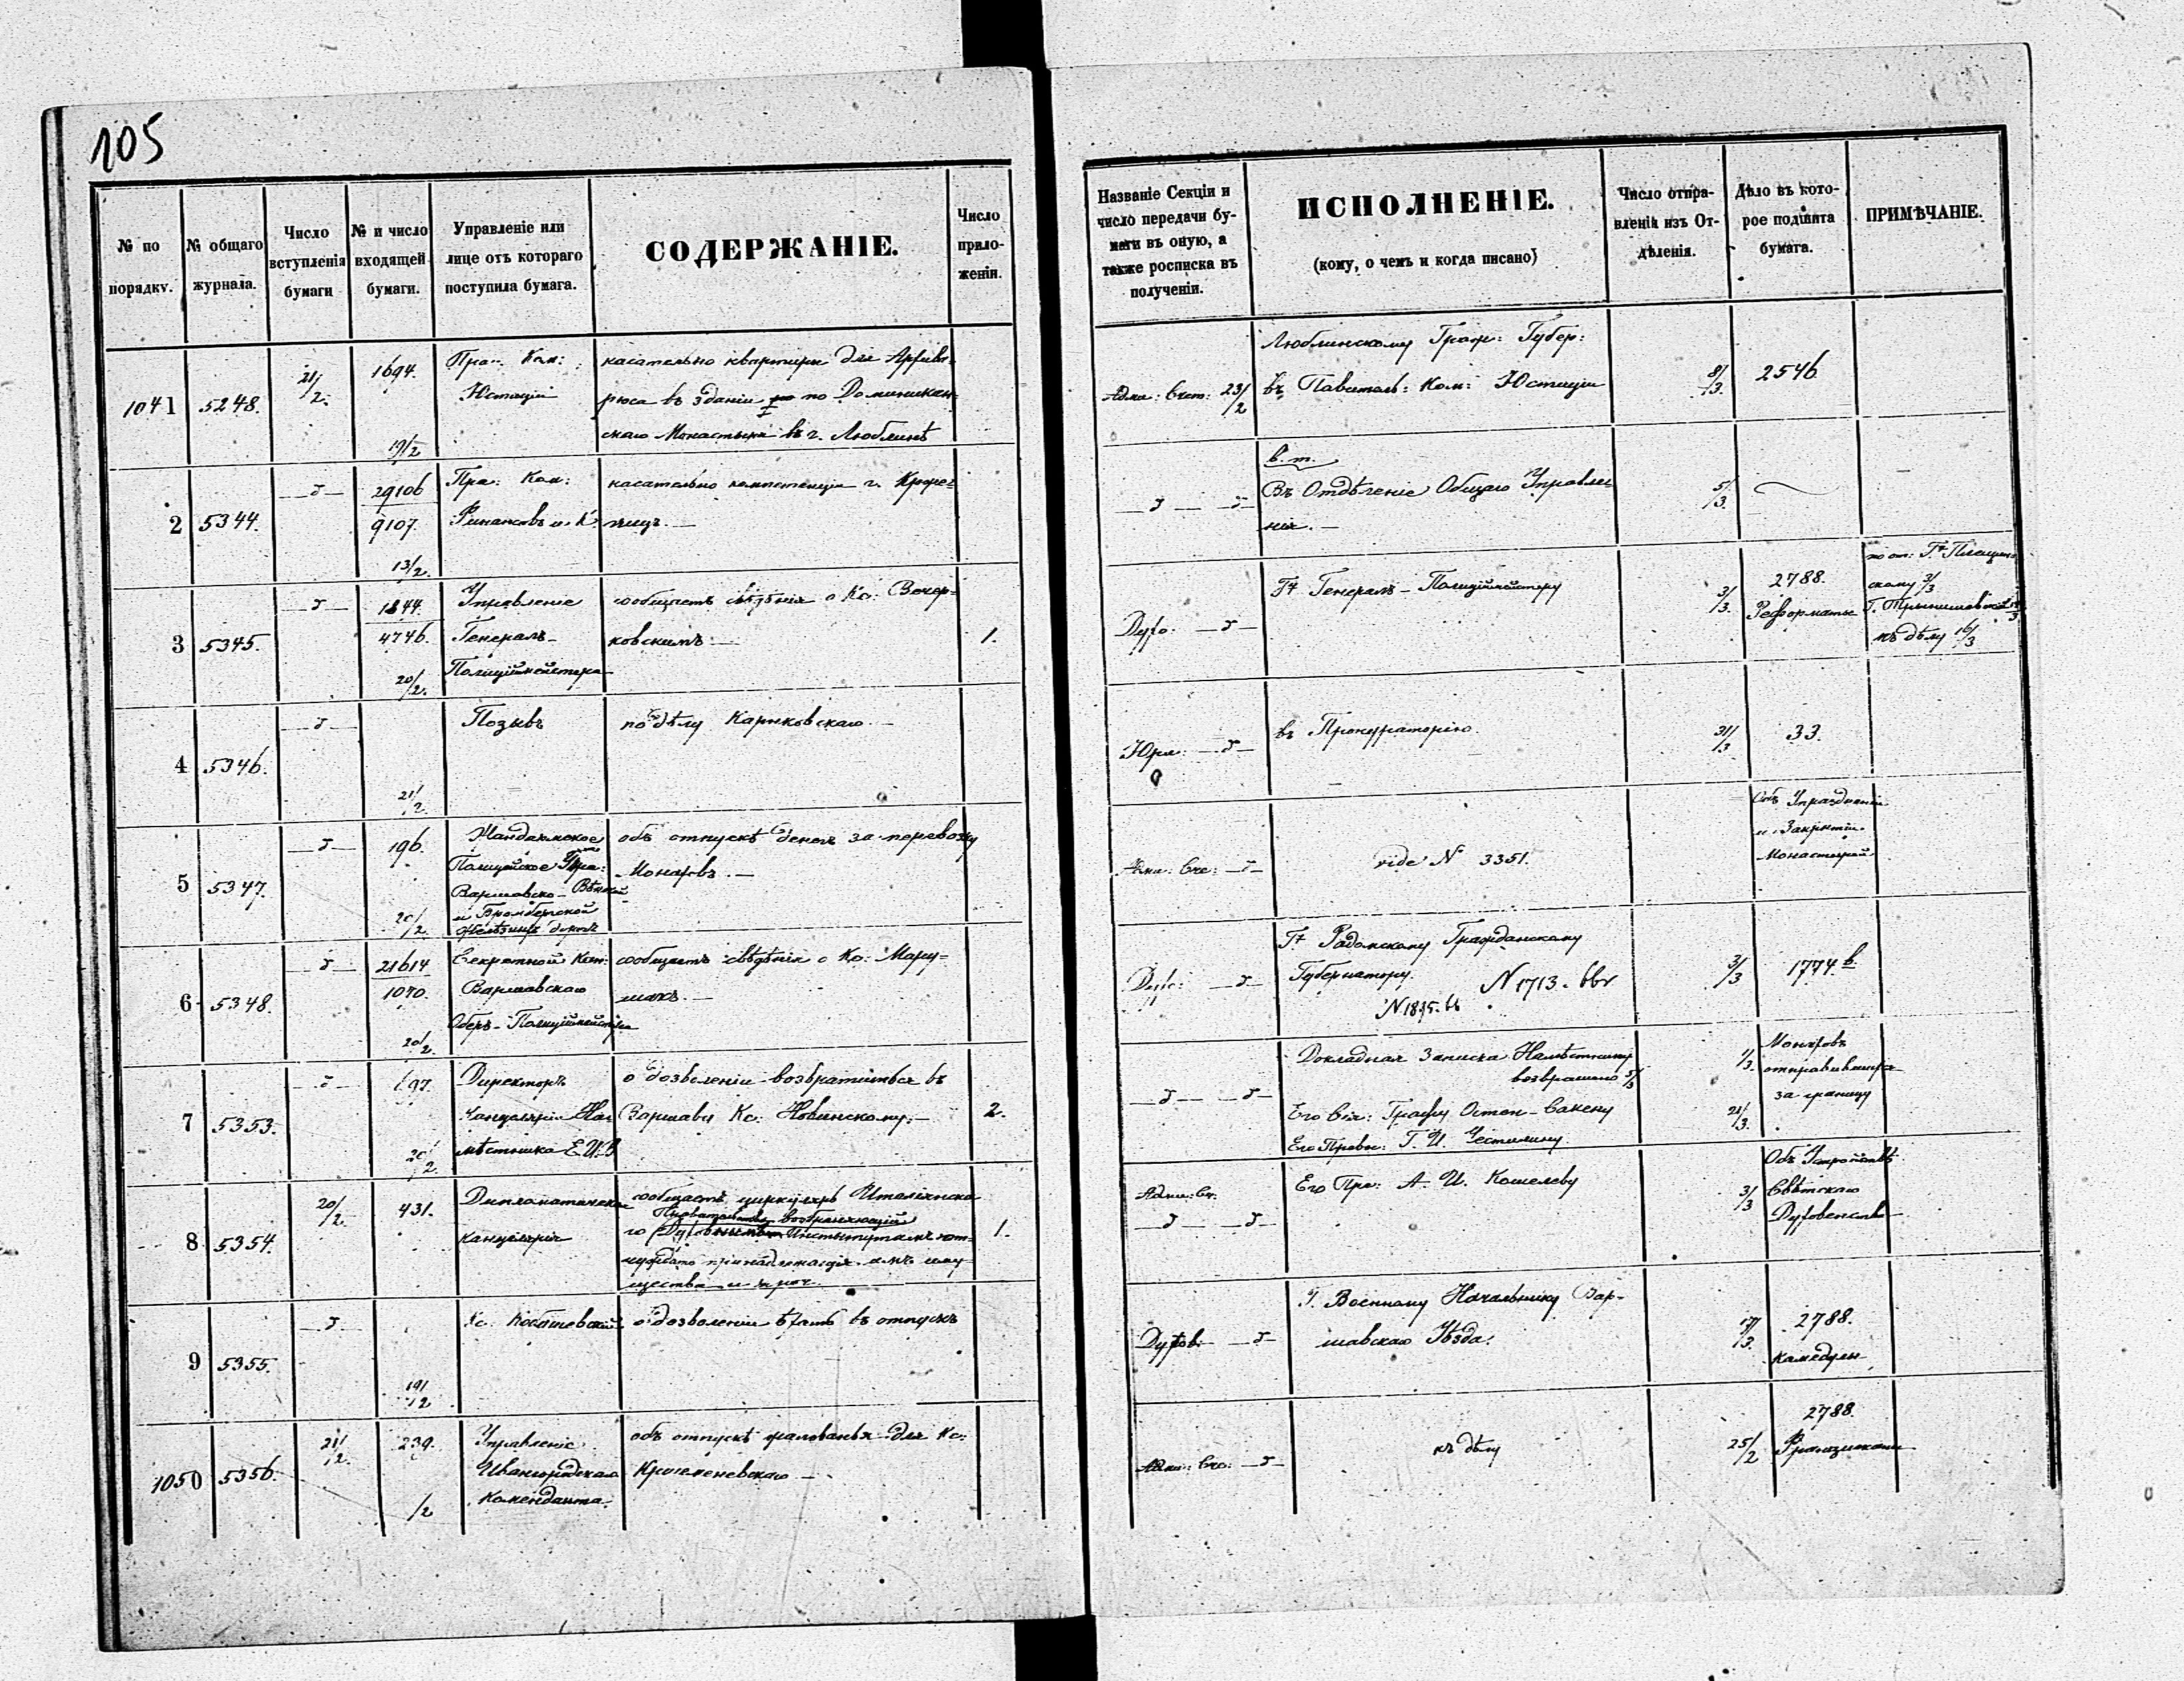 105
№ по порядку.
№ общаго журнала.
Число вступленія бумаги
№ и число входящей бумаги.
Управленіе или лице отъ котораго поступила бумага.
СОДЕРЖАНІЕ.
Число приложеній.
Названіе Секціи и число передачи бумаги въ оную, а также росписка въ полученіи.
ИСПОЛНЕНІЕ.
(кому, о чемъ и когда писано)
Число отправленія изъ Отдѣленія.
Дѣло въ которое подшита бумага.
ПРИМѢЧАНІЕ.
1041
5248.
21/2.
1694.
19/2
Прав. Ком:
Юстиціи
касательно квартиры для
въ зданіи по Доминикан-
скаго Монастыря въ г. Люблинѣ
23/2
Люблинскому Граж: Губер:
въ Правитель: Ком: Юстиціи
8/3.
2546
2
5344.
29106
9107.
13/2.
Пра: Ком:
Финансовъ и К
касательно компетенціи г.
в. т.
Въ Отдѣленіе Общаго Управле-
нія. —
5/3.
3
5345.
1844.
4746.
20/2.
Управленіе
Генералъ-
Полиціймейстера
сообщаетъ свѣдѣнія о Кс:
ковскимъ —
1.
Духо:
Гну Генералъ-Полиціймейстеру
3/3.
2788.
Реформаты
скому 3/3
къ дѣлу 16/3
4
5346.
21/2.
Позывъ
по дѣлу Карнковскаго —
Юри:
въ Прокураторію.
31/3
33.
5
5347.
196.
20/2
Жандармское
Полицейское Упра:
Варшавско-Вѣнской
и Бромбергской
желѣзныхъ дорогъ
объ отпускѣ денегъ за перевозку
Монаховъ. —
Адми: Сче:
vide N 3351.
Объ Упраздненіи
и Закрытіи
Монастырей
6
5348.
21614
1070.
20/2
Секретной Кан:
Варшавскаго
Оберъ-Полиціймейстера
сообщаетъ свѣдѣнія о Кс: Мару-
шакъ. —
Духо:
Гну Радомскому Гражданскому
Губернатору. N 1713.
3/3
1774 в.
7
5353.
697.
20/2
Директоръ
Канцеляріи На-
мѣстника Е.И.В
о дозволеніи возвратиться въ
Варшаву Кс: Новинскому. —
2.
Докладная Записка Намѣстнику
возвращено 5/3
Его Сія: Графу Остен-Сакену
1/3.
21/3.
Монаховъ
отправившихся
за границу
8
5354.
20/2.
431.
Дипломатическая
канцелярія
сообщаетъ циркуляръ Итальянска-
го
щества и проч.
1.
Его Пре: А. И. Кошелеву
3/3
Объ Устройствѣ
Свѣтскаго
Духовенства
9
5355.
19/2
Кс.
о дозволеніи ѣхать въ отпускъ
Духов:
Г. Военному Начальнику Вар-
шавскаго Уѣзда.
17/3.
2788.
Камедулы
1050
5356.
21/2.
239.
/2
Управленіе
Ивангородскаго
Коменданта.
объ отпускѣ жалованья для Кс:
Адми: Сче:
къ дѣлу
25/2
2788.
Францискане